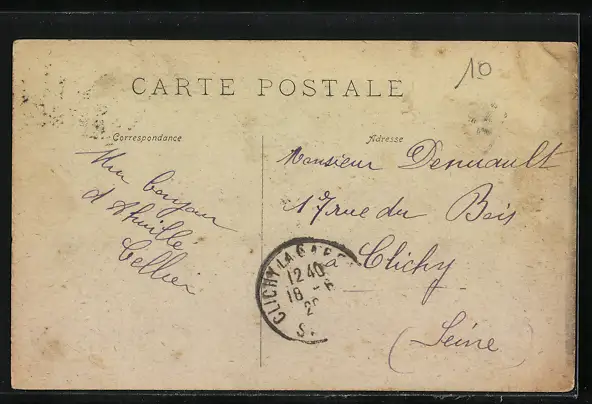 10
CARTE POSTALE
Correspondance
Un bonjour
d'Ahuillé
Tellier
Adresse
Monsieur Denuault
17 rue du Bois
à Clichy
(Seine)
CLICHY LA GARE
12 40
18 - 6
S.